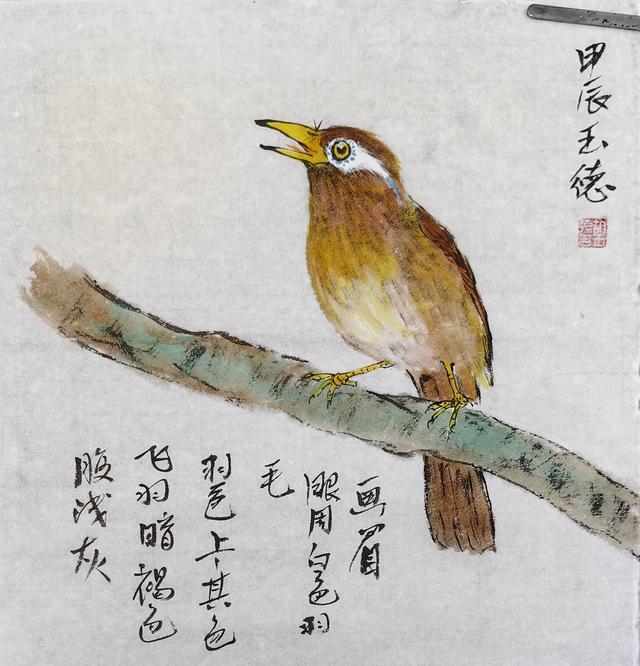 甲辰玉德
画眉
眼周白色羽
毛
羽色上其色
飞羽暗褐色
腹浅灰